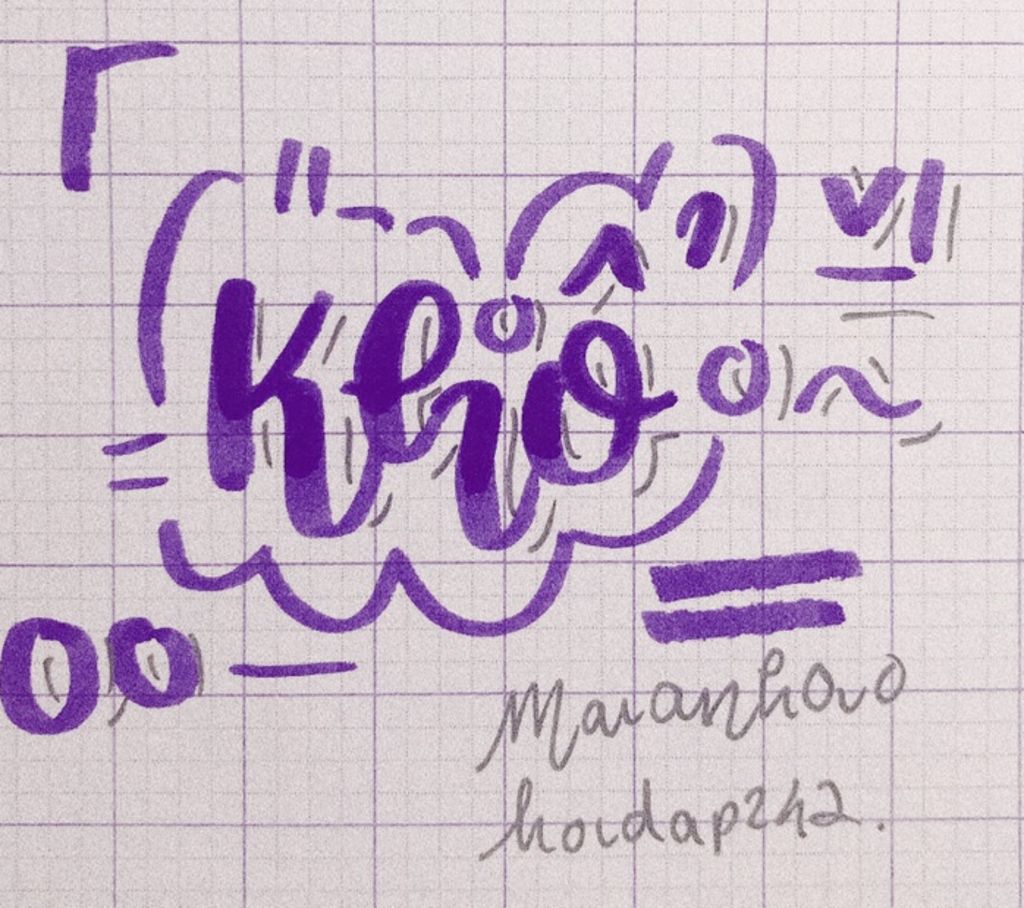 Khô
Maianhovo
hoidap242.